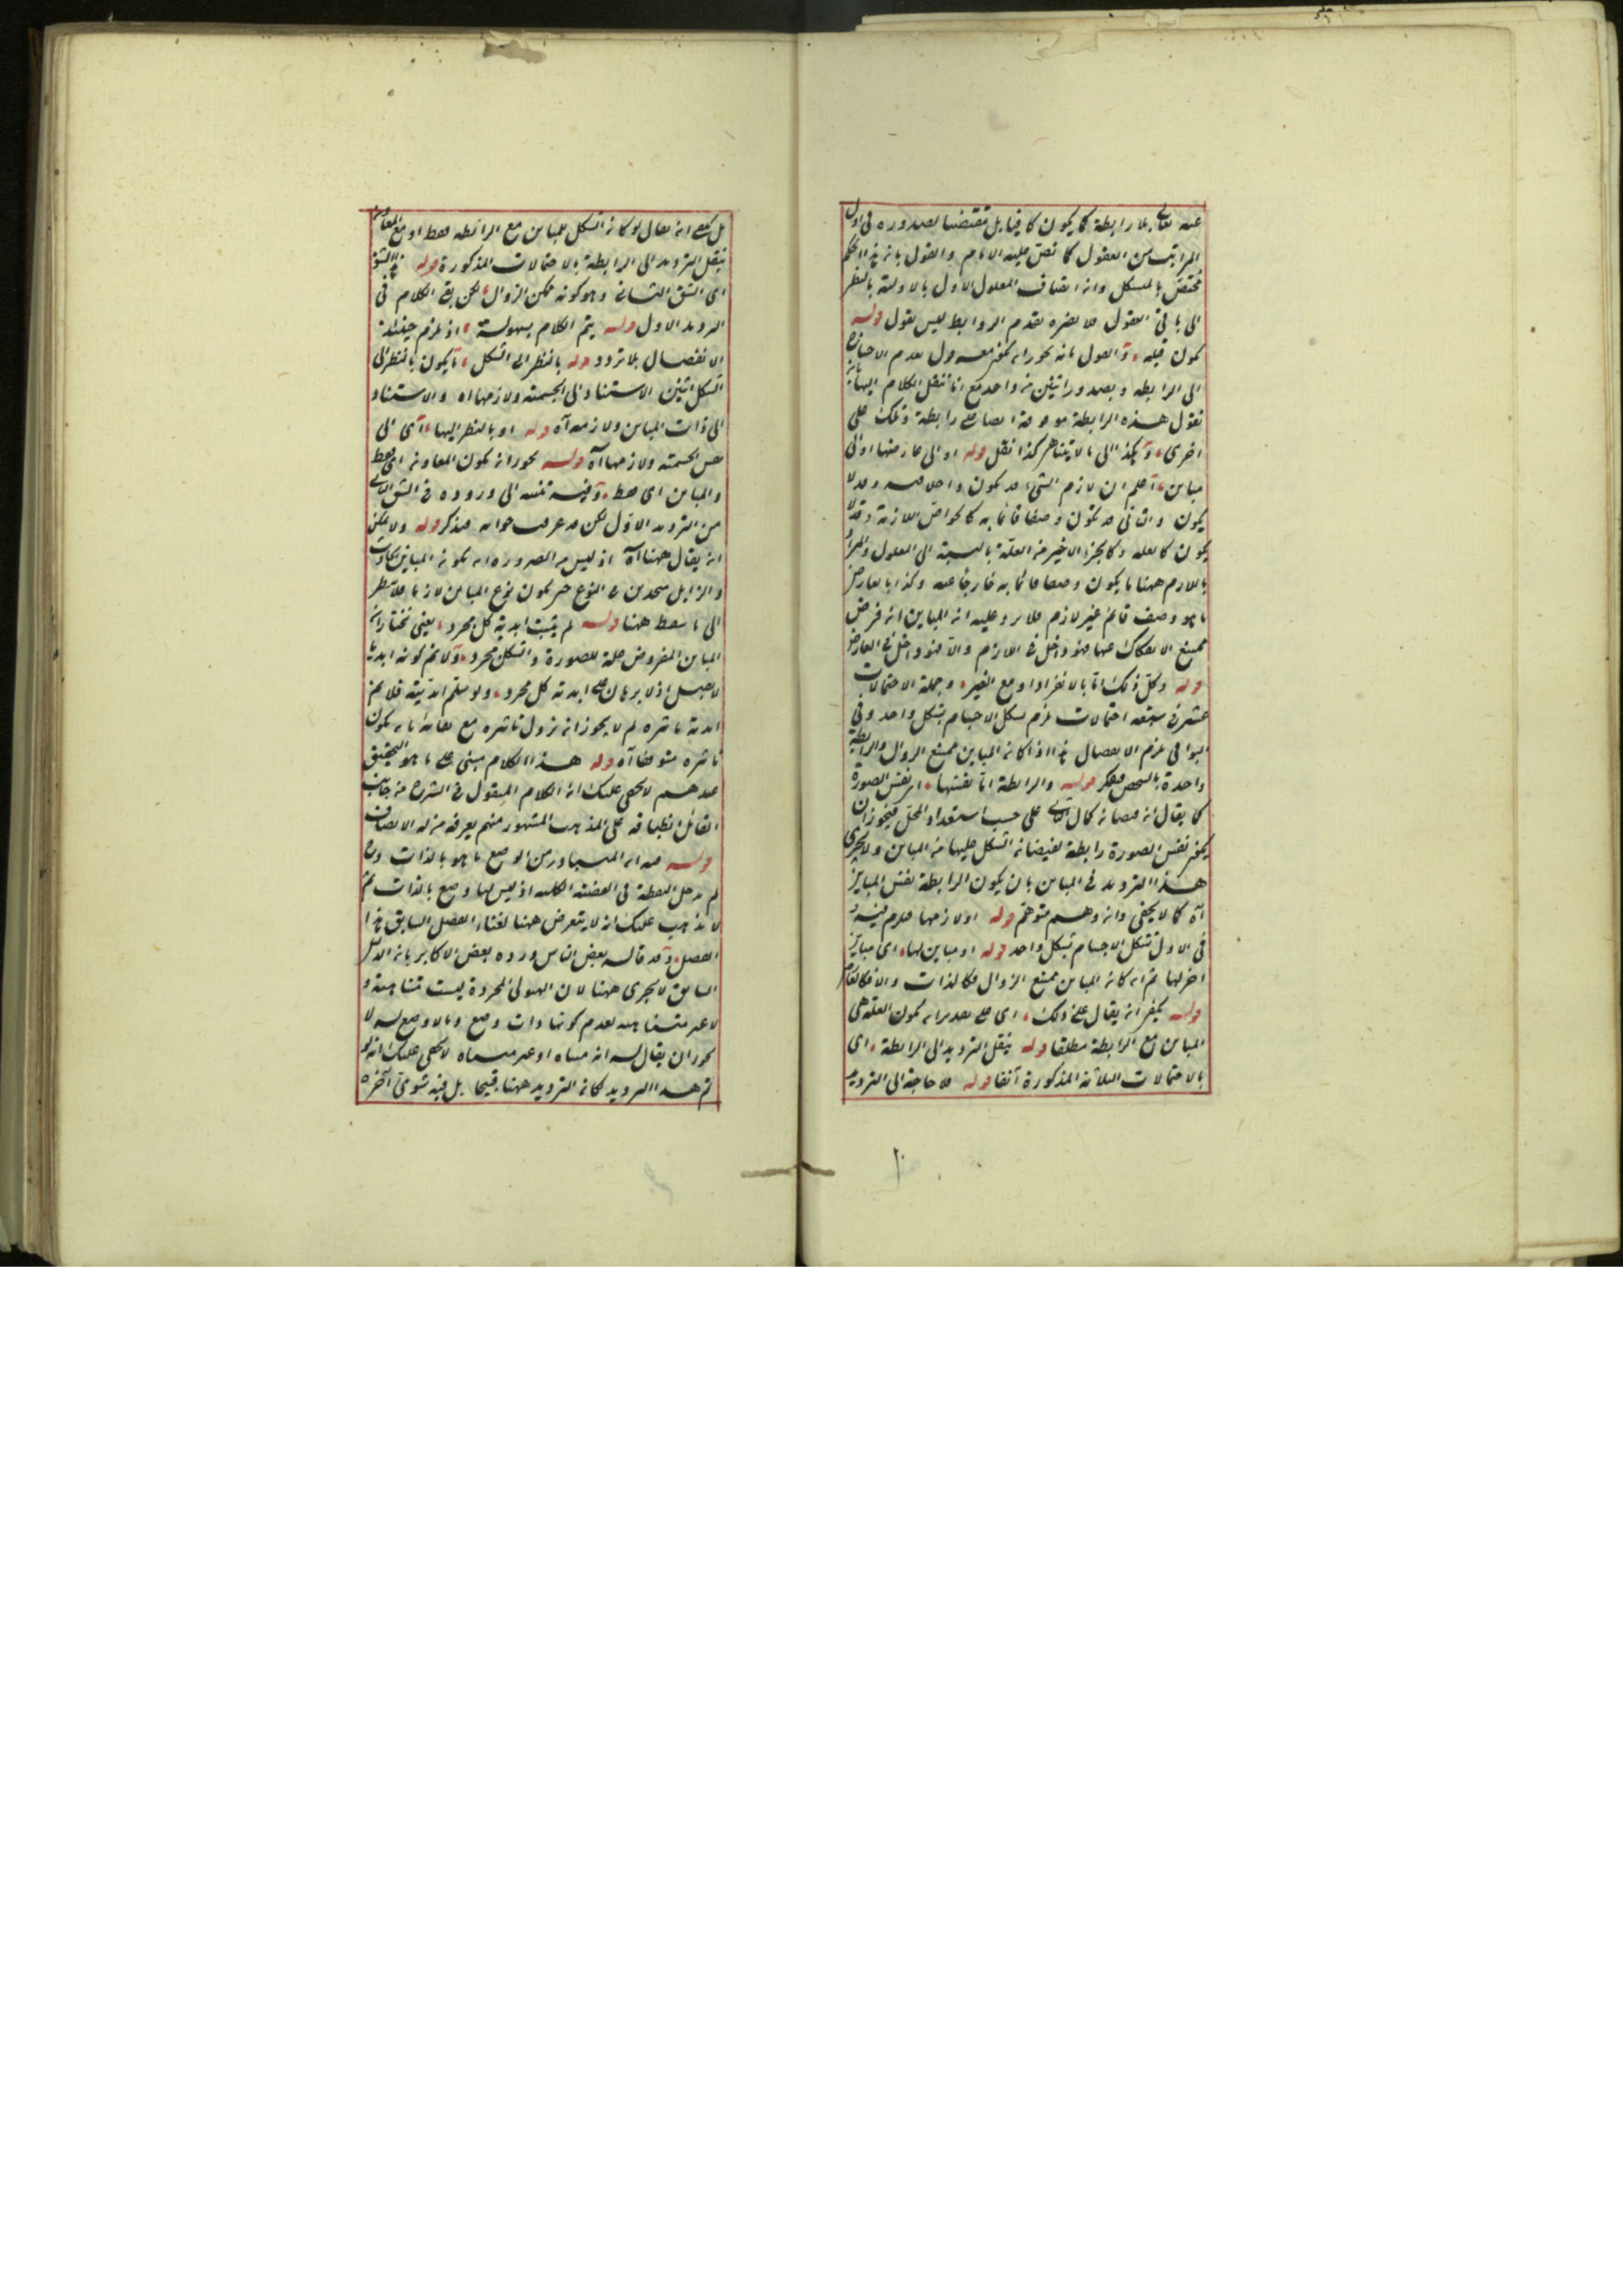 عنه تعالى بلا رابطة كما يكون كافيا بل مقتضيا لصدوره في اول
المراتب من العقول كما نص عليه الامام والقول بانه هذا الحكم
مختص بالمشكل وانه اتصاف المعلول الاول بالاولية بالنظر
الى باقي العقول فلا يضره تقدم الروابط ليس بقول قوله
الى الرابطة وبصدور اثنين من واحد مع انا ننقل الكلام اليها
نقول هذه الرابطة موقوفة ايضا على رابطة وتلك على
اخرى وهكذا الى ما لا يتناهى كذا نقل قوله او الى عارضها او الى
مباين اعلم ان لازم الشيء قد يكون داخلا فيه وقد لا
يكون والثاني قد يكون وصفا قائما به كالخواص اللازمة وقد لا
يكون كالعلة وكالجزء الاخير من العلة بالنسبة الى المعلول والمراد
باللازم ههنا ما يكون وصفا قائما به خارجا عنه وكذا بالعارض
ما هو وصف قائم غير لازم فلا يرد عليه انه المباين انه فرض
ممتنع الانفكاك عنها فهو داخل في اللازم والا فهو داخل في العارض
قوله وكل ذلك اما بالانفراد او مع الغير وجملة الاحتمالات
عشر في سبعة احتمالات لزم تشكل الاجسام بشكل واحد وفي
البواقي لزم الانفصال هذا اذا كانه المباين ممتنع الزوال والرابطة
واحدة بالشخص فكر قوله والرابطة اما نفسها اى نفس الصورة
كما يقال انه فيضانه كمال الثاني على حسب استعداد المحل فيجوز ان
يكون نفس الصورة رابطة لفيضانه الشكل عليها من المباين ولا يجرى
هذا الترديد في المباين بان يكون الرابطة نفس المباين
آه كما لا يخفى وانه وهم متوهم قوله او لازمها فلزم فيه و
في الاول تشكل الاجسام بشكل واحد قوله او مباين لها اى مباين
اخر لها ثم انه كانه المباين ممتنع الزوال فكالذات والا فكالعارض
قوله يكفى انه يقال على ذلك اى على تقدير انه يكون العلة هي
المباين مع الرابطة مطلقا قوله ينقل الترديد الى الرابطة اى
بالاحتمالات الثلاثة المذكورة آنفا قوله فلا حاجة الى الترديد
بل يكفي انه يقال لو كانه الشكل للمباين مع الرابطة فقط او مع المعاون
ينقل الترديد الى الرابطة بالاحتمالات المذكورة قوله هذا الشق
اى الشق الثاني وهو كونه ممكن الزوال لكن بقى الكلام في
الترديد الاول قوله يتم الكلام بسهولة اذ لزم حينئذ
الانفصال بلا تردد قوله بالنظر الى الشكل ما يكون بالنظر الى
الشكل اثنين الاستناد الى الجسمية ولازمها اه والاستناد
الى ذات المباين ولازمه آه قوله او بالنظر اليها اى الى
نفس الجسمية ولازمها آه قوله يجوز انه يكون المعاونة اى فقط
والمباين اى فقط وفيه تنبيه الى وروده في الشق الثاني
من الترديد الاول لكن قد عرفت جوابه فتذكر قوله ولا يمكن
انه يقال ههنا آه اذ ليس من الضرورة انه يكونه المباين الحادث
والزايل متحدين في النوع حتى يكون نوع المباين لازما فلا ينظر
الى ما سقط ههنا قوله لم يثبت ابدية كل مجرد يعنى نختار انه
المباين المفروض علة للصورة والشكل مجرد ولا نم كونه ابديا
لا صيل اذ لا برهان على ابدية كل مجرد ولو سلم ابديته فلا نم
ابدية تاثيره لم لا يجوز انه يزول تاثيره مع بقائه بانه يكون
تاثيره متوقفا آه قوله هذا الكلام مبنى على ما هو التحقيق
عندهم لا يخفى عليك انه الكلام المنقول في الشرح من جانب
القائل انطباقه على المذهب المشهور منهم يعرفه من له الانصاف
قوله فيه انه المتبادر من الوضع ما هو بالذات وح
لم يدخل النقطة في القضية الكلية اذ ليس لها وضع بالذات ثم
لا يذهب عليك انه لا يتعرض ههنا لغناء الفصل السابق هذا
الفصل وقد قاله بعض الناس ورده بعض الاكابر بانه الدليل
السابق لا يجرى ههنا لان الهيولى المجردة ليست متناهية و
لا غير متناهية لعدم كونها ذات وضع وما لا وضع له لا
يجوز ان يقال له انه متناه او غير متناه لا يخفى عليك انه لو
تم هذا الترديد لكانه الترديد ههنا قبيحا بل فيه شوق آخره